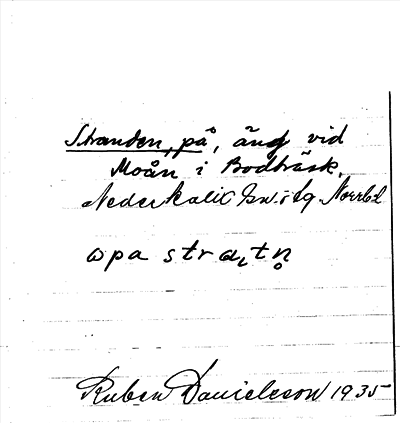 Stranden, på, äng vid
Moån i Bodträsk,
Nederkalix sn.
ɷpa strat̥n̥
Ruben Danielsson 1935